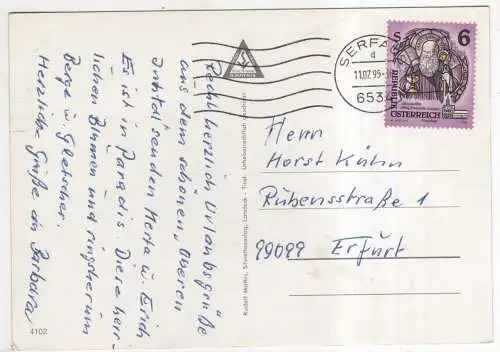 Recht herzlich Urlaubsgrüße
aus dem schönen „Oberen
Inntal" senden Herta u. Erich
Es ist ein Paradis. Diese herr-
lichen Blumen und ringsherum
Berge u. Gletscher.
Herzliche Grüße an Barbara
4102
Rudolf Mathis, Landeck - Tirol. Urheberrechtlich geschützt
SERFA
d
11.07.95
653
S 6
REPUBLIK
ÖSTERREICH
Herrn
Horst Kühn
Rubensstraße 1
99099 Erfurt